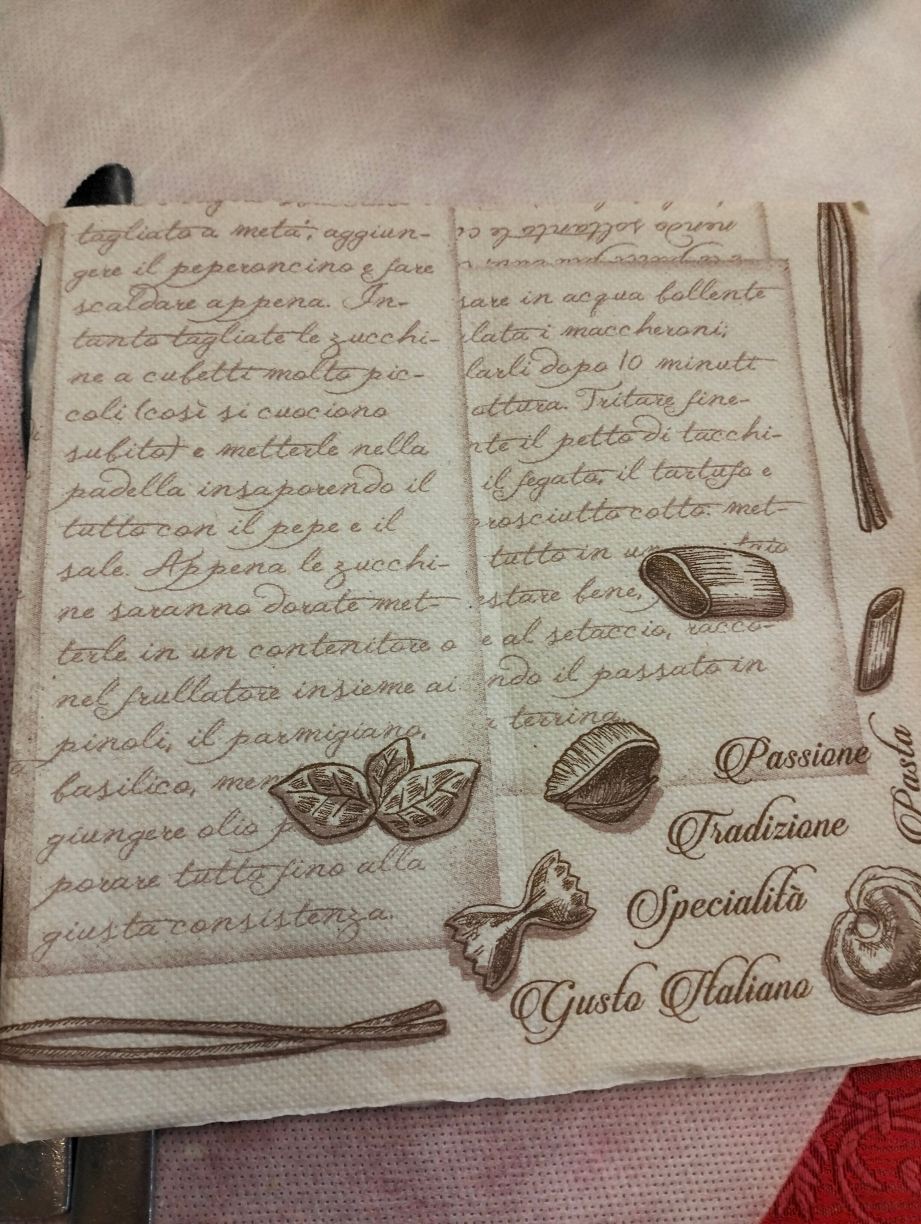 tagliato a metà; aggiun-
gere il peperoncino e fare
scaldare appena. In-
tanto tagliate le zucchi-
ne a cubetti molto pic-
coli (così si cuociono
subito) e metterle nella
padella insaporendo il
tutto con il pepe e il
sale. Appena le zucchi-
ne saranno dorate met-
terle in un contenitore o
nel frullatore insieme ai
pinoli, il parmigiano,
basilico, men
giungere olio p
porare tutto fino alla
giusta consistenza.
nendo soltanto le c
sare in acqua bollente
lata i maccheroni;
larli dopo 10 minuti
ottura. Tritare fine-
nte il petto di tacchi-
il fegato, il tartufo e
rosciutto cotto: met-
tutto in un
estare bene,
e al setaccio, racco-
ndo il passato in
a terrina.
Passione
Tradizione
Specialità
Gusto Italiano
Pasta